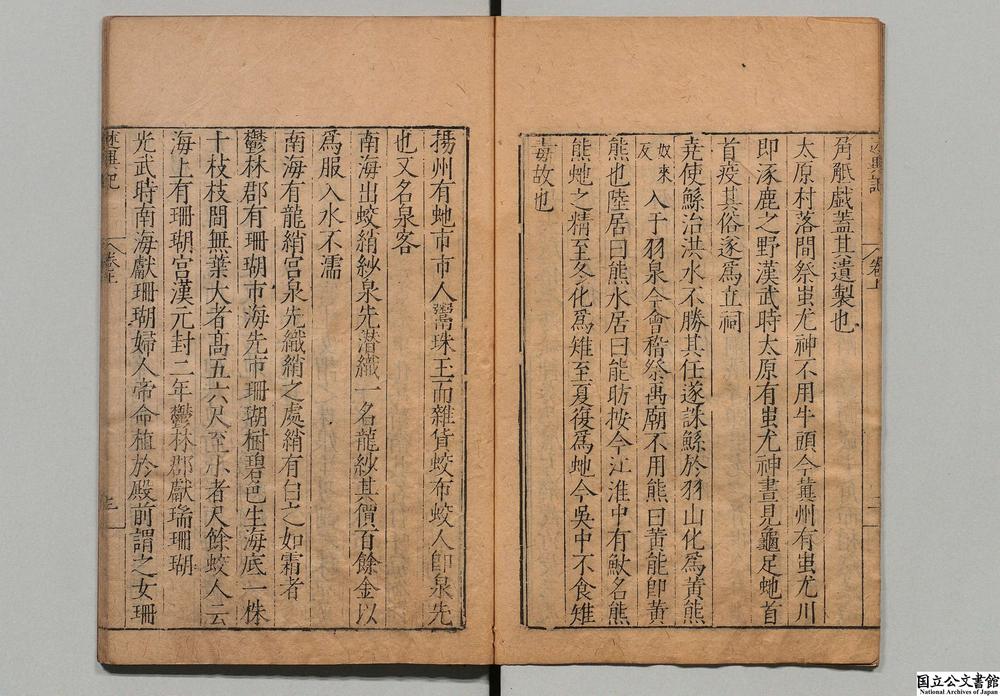 述異記
卷上
二
角觝戲蓋其遺製也
太原村落間祭蚩尤神不用牛頭今冀州有蚩尤川
即涿鹿之野漢武時太原有蚩尤神晝見龜足虵首
首疫其俗遂爲立祠
堯使鯀治洪水不勝其任遂誅鯀於羽山化爲黃熊
奴來反入于羽泉今會稽祭禹廟不用熊曰黃能即黃
熊也陸居曰熊水居曰能昉按今江淮中有䱾名熊
熊虵之精至冬化爲雉至夏復爲虵今吳中不食雉
毒故也
揚州有虵市市人鬻珠玉而雜貨蛟布蛟人即泉先
也又名泉客
南海出蛟綃紗泉先潜織一名龍紗其價百餘金以
爲服入水不濡
南海有龍綃宮泉先織綃之處綃有白之如霜者
鬱林郡有珊瑚市海先市珊瑚樹碧色生海底一株
十枝枝間無葉大者高五六尺至小者尺餘蛟人云
海上有珊瑚宮漢元封二年鬱林郡獻瑞珊瑚
光武時南海獻珊瑚婦人帝命植於殿前謂之女珊
述異記
卷上
三
国立公文書館
National Archives of Japan